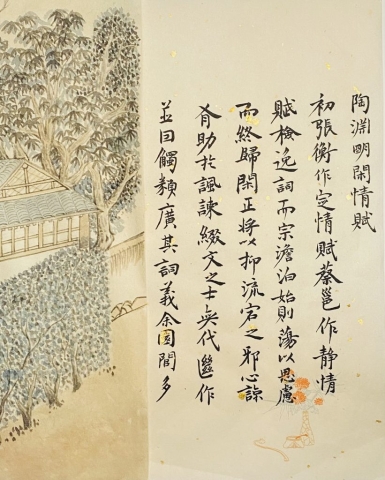 陶淵明閑情賦
初張衡作定情賦蔡邕作靜情
賦檢逸詞而宗澹泊始則蕩以思慮
而終歸閑正將以抑流宕之邪心諒
有助於諷諫綴文之士奕代繼作
並因觸類廣其詞義余園閭多